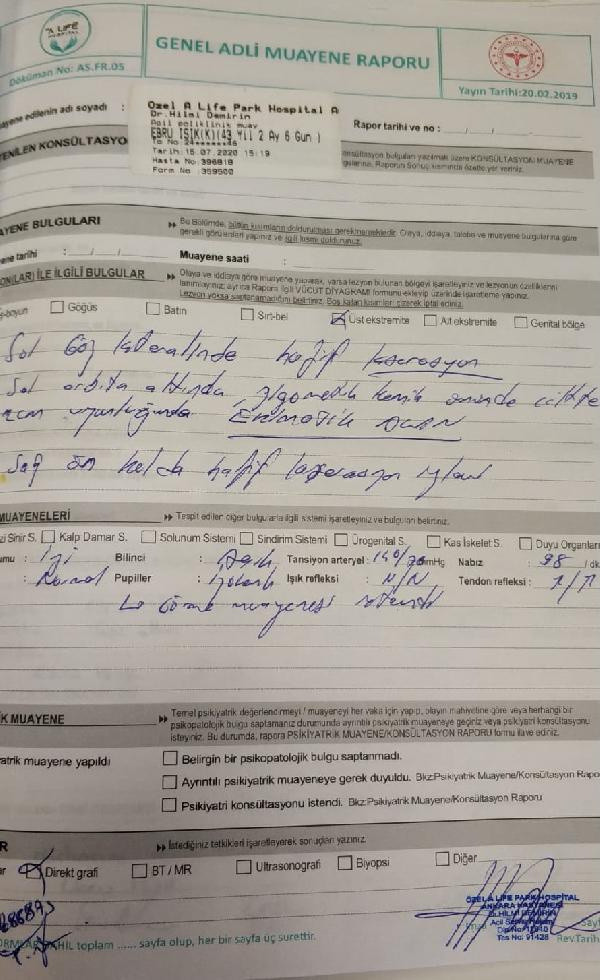 A LIFE
HOSPITAL
GENEL ADLİ MUAYENE RAPORU
Doküman No: AS.FR.05
Yayın Tarihi:20.02.2019
ayene edilenin adı soyadı :
Ozel A Life Park Hospital A
Dr.Hilmi Demirin
Acil poliklinik muay
EBRU IŞIK(K)(43 Yıl 2 Ay 6 Gun )
Tarih:15.07.2020 15:19
Hasta No:396818
Form No :359500
Rapor tarihi ve no : / /
TENİLEN KONSÜLTASYO
onsültasyon bulguları yazılmak üzere KONSÜLTASYON MUAYENE
AYENE BULGULARI
Bu Bölümde, bütün kısımların doldurulması gerekmemektedir. Olaya, iddiaya, talebe ve muayene bulgularına göre
gerekli görülenleri yapınız ve ilgili kısmı doldurunuz.
ene tarihi : / / Muayene saati :
ON(LARI) İLE İLGİLİ BULGULAR
Olaya ve iddiaya göre muayene yaparak, varsa lezyon bulunan bölgeyi işaretleyiniz ve lezyonun özelliklerini
tanımlayınız; ayrıca Rapora İlgili VÜCUT DİYAGRAMI formunu ekleyip üzerinde işaretleme yapınız.
Lezyon yoksa saptanamadığını belirtiniz. Boş kalan kısımları çizerek iptal ediniz.
ş-boyun Göğüs Batın Sırt-bel Üst ekstremite Alt ekstremite Genital bölge
Sol Göz lateralinde hafif laserasyon
Sol orbita altında, zigomatik kemik önünde ciltte
uzunluğunda
Sağ ön kolda hafif laserasyon
MUAYENELERİ
Tespit edilen diğer bulgularla ilgili sistemi işaretleyiniz ve bulguları belirtiniz.
zi Sinir S. Kalp Damar S. Solunum Sistemi Sindirim Sistemi Ürogenital S. Kas İskelet S. Duyu Organları
umu : İyi Bilinci : Açık Tansiyon arteryel : 140/70mmHg Nabız : 98 /dk
: Normal Pupiller : İzokorik Işık refleksi : N/N Tendon refleksi :
muayenesi
K MUAYENE
Temel psikiyatrik değerlendirmeyi / muayeneyi her vaka için yapıp, olayın mahiyetine göre veya herhangi bir
psikopatolojik bulgu saptamanız durumunda ayrıntılı psikiyatrik muayeneye geçiniz veya psikiyatri konsültasyonu
isteyiniz. Bu durumda, rapora PSİKİYATRİK MUAYENE/KONSÜLTASYON RAPORU formu ilave ediniz.
atrik muayene yapıldı
Belirgin bir psikopatolojik bulgu saptanmadı.
Ayrıntılı psikiyatrik muayeneye gerek duyuldu. Bkz:Psikiyatrik Muayene/Konsültasyon Rapo
Psikiyatri konsültasyonu istendi. Bkz:Psikiyatrik Muayene/Konsültasyon Raporu
R
İstediğiniz tetkikleri işaretleyerek sonuçları yazınız.
er Direkt grafi BT / MR Ultrasonografi Biyopsi Diğer
ÖZEL A LIFE PARK HOSPITAL
ANKARA HASTANESİ
Dr.HİLMİ DEMİRİN
Tes No: 91428
toplam ...... sayfa olup, her bir sayfa üç surettir.
Rev.Tarih